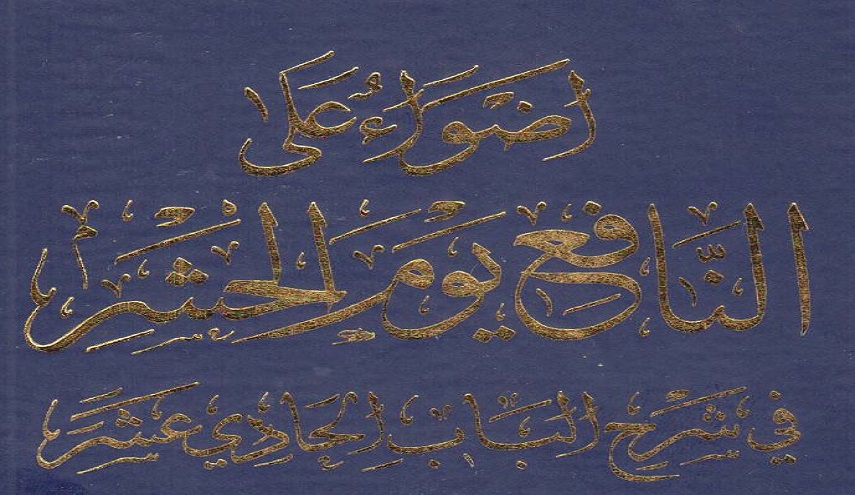 أضواء على
النافع يوم الحشر
في شرح الباب الحادي عشر